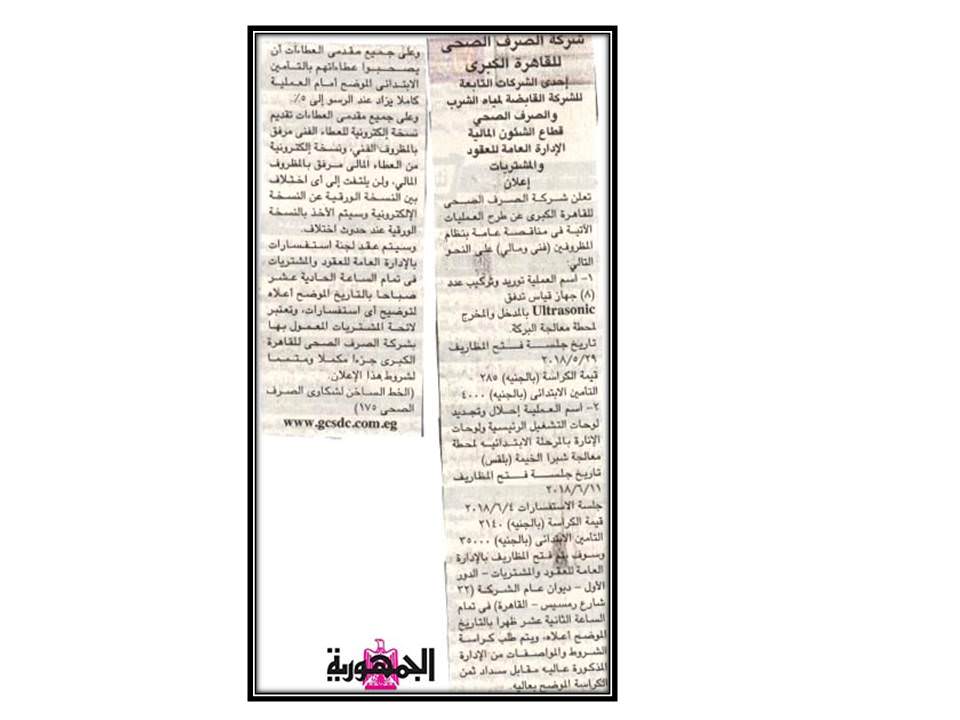 شركة الصرف الصحى
للقاهرة الكبرى
إحدى الشركات التابعة
للشركة القابضة لمياه الشرب
والصرف الصحي
قطاع الشئون المالية
الإدارة العامة للعقود
والمشتريات
إعلان
تعلن شركة الصرف الصحى
للقاهرة الكبرى عن طرح العمليات
الآتية فى مناقصة عامة بنظام
المظروفين (فنى ومالي) على النحو
التالي:
١- اسم العملية توريد وتركيب عدد
(٨) جهاز قياس تدفق
Ultrasonic بالمدخل والمخرج
لمحطة معالجة البركة.
تاريخ جلسة فتح المظاريف
٢٠١٨/٥/٢٩
قيمة الكراسة (بالجنيه) ٢٨٥
التأمين الابتدائى (بالجنيه) ٤٠٠٠
٢- اسم العملية إحلال وتجديد
لوحات التشغيل الرئيسية ولوحات
الإنارة بالمرحلة الابتدائيه لمحطة
معالجة شبرا الخيمة (بلقس)
تاريخ جلسة فتح المظاريف
٢٠١٨/٦/١١
جلسة الاستفسارات ٢٠١٨/٦/٤
قيمة الكراسة (بالجنيه) ٢١٤٠
التأمين الابتدائى (بالجنيه) ٣٥٠٠٠
وسوف يتم فتح المظاريف بالإدارة
العامة للعقود والمشتريات - الدور
الأول - ديوان عام الشركة (٣٢
شارع رمسيس - القاهرة) فى تمام
الساعة الثانية عشر ظهرا بالتاريخ
الموضح أعلاه، ويتم طلب كراسة
الشروط والمواصفات من الإدارة
المذكورة عاليه مقابل سداد ثمن
الكراسة الموضح بعاليه.
وعلى جميع مقدمى العطاءات أن
يصحبوا عطاءاتهم بالتأمين
الابتدائى الموضح أمام العملية
كاملا يزاد عند الرسو إلى ٥٪.
وعلى جميع مقدمى العطاءات تقديم
نسخة إلكترونية للعطاء الفنى مرفق
بالمظروف الفني، ونسخة إلكترونية
من العطاء المالى مرفق بالمظروف
المالي، ولن يلتفت إلى أى اختلاف
بين النسخة الورقية عن النسخة
الإلكترونية وسيتم الأخذ بالنسخة
الورقية عند حدوث اختلاف.
وسيتم عقد لجنة استفسارات
بالإدارة العامة للعقود والمشتريات
فى تمام الساعة الحادية عشر
صباحا بالتاريخ الموضح أعلاه
لتوضيح أى استفسارات، وتعتبر
لائحة المشتريات المعمول بها
بشركة الصرف الصحى للقاهرة
الكبرى جزءا مكملا ومتمما
لشروط هذا الإعلان.
(الخط الساخن لشكاوى الصرف
الصحى ١٧٥)
www.gcsdc.com.eg
الجمهورية